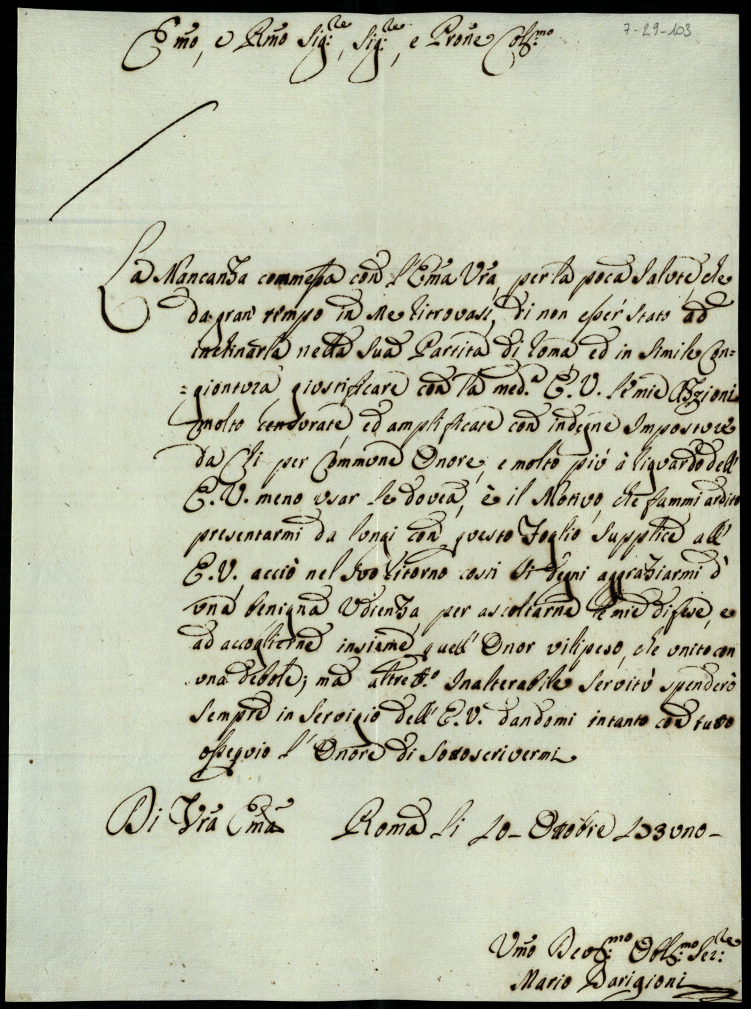 7-29-103
Emo, e Rmo Sig:re, Sig:re, e Prone Coll:mo
La Mancanza commessa con l'Ema Vra, per la poca salute che
da gran tempo in me ritrovasi, di non esser stato ad
inchinarla nella sua Partita di Roma ed in simile Con=
=giontura giustificare con la med.a E.V. le mie Azzioni
molto censurate ed amplificate con indegne Imposture
da Chi per Commune Onore, e molto più à riguardo dell'
E.V. meno usar le dovea, è il Motivo, che fammi ardito
presentarmi da lungi con questo Foglio supplice all'
E.V. acciò nel suo ritorno costì si degni aggraziarmi d'
una benigna Udienza per ascoltarne le mie difese, e
ad accoglierne insieme quell'Onor vilipeso, che unito con
una debole; ma altrett.o Inalterabile servitù spenderò
sempre in servigio dell'E.V. dandomi intanto con tutto
ossequio l'Onore di sottoscrivermi
Di Vra Ema Roma li 10- Ottobre
Umo Devot:mo Obl:mo Ser:re
Mario